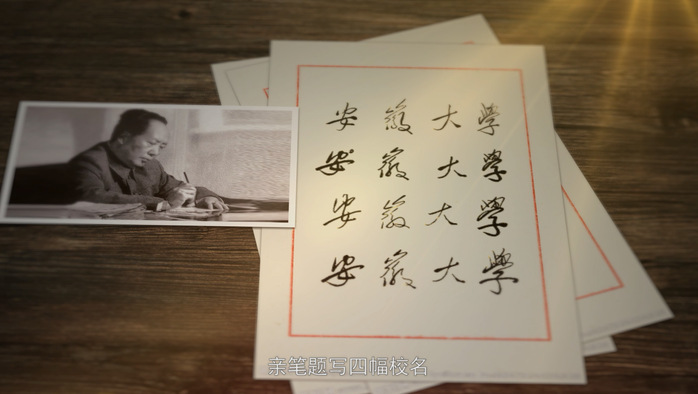 安 徽 大 學
安 徽 大 學
安 徽 大 學
安 徽 大 學
亲笔题写四幅校名